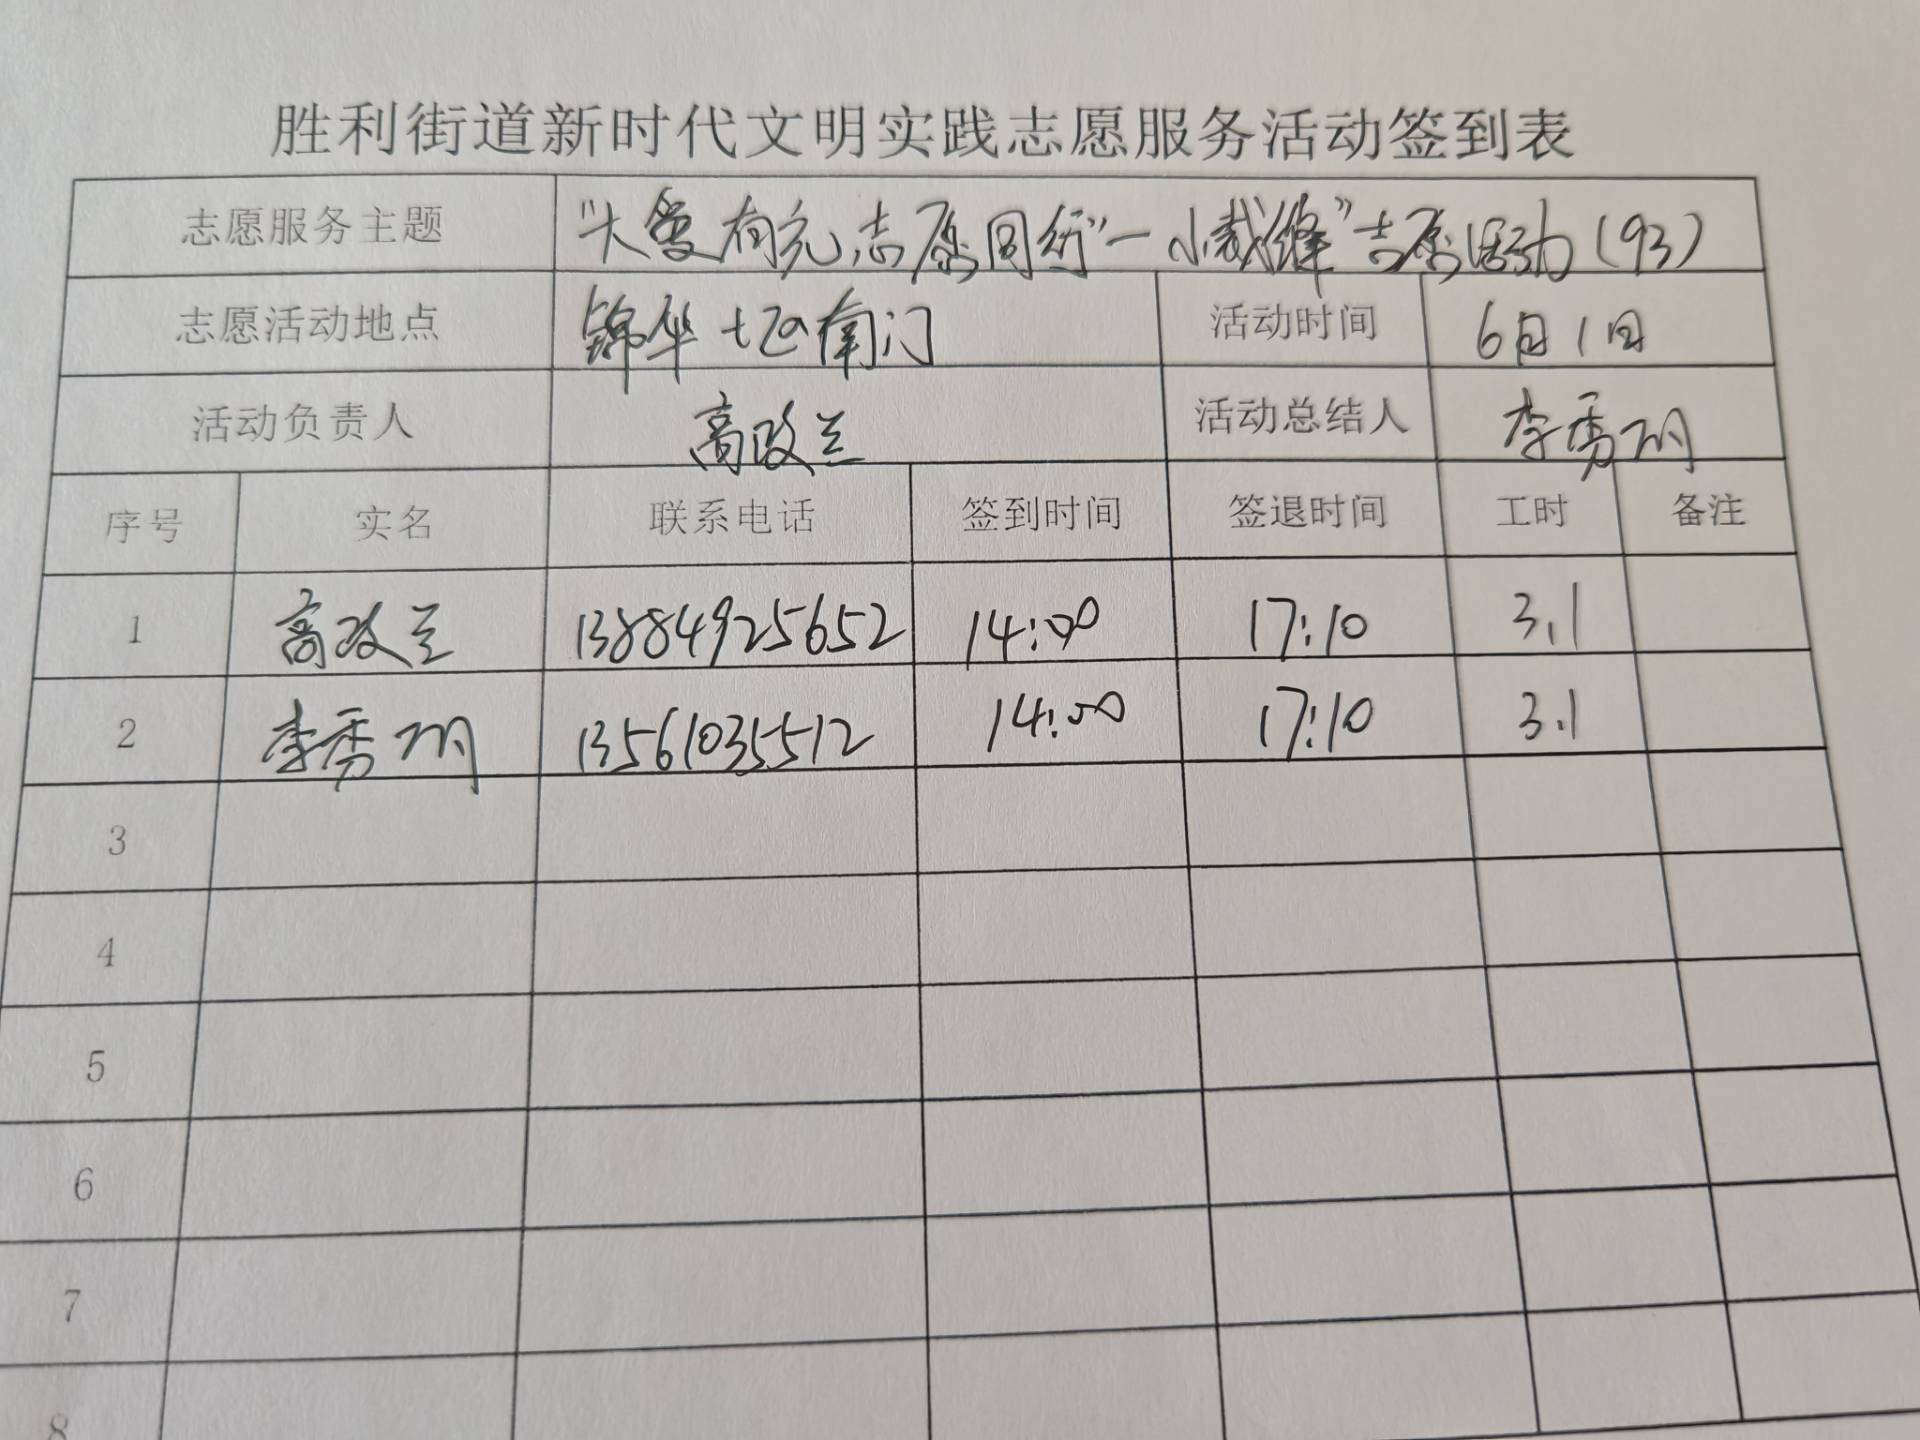 胜利街道新时代文明实践志愿服务活动签到表
志愿服务主题 "大爱有元，志愿同行"一小裁缝"志愿活动(93)
志愿活动地点 锦华七区南门 活动时间 6月1日
活动负责人 高政兰 活动总结人 李秀
序号 实名 联系电话 签到时间 签退时间 工时 备注
1 高政兰 13884925652 14:00 17:10 3.1
2 李秀 13561035512 14:00 17:10 3.1
3
4
5
6
7
8